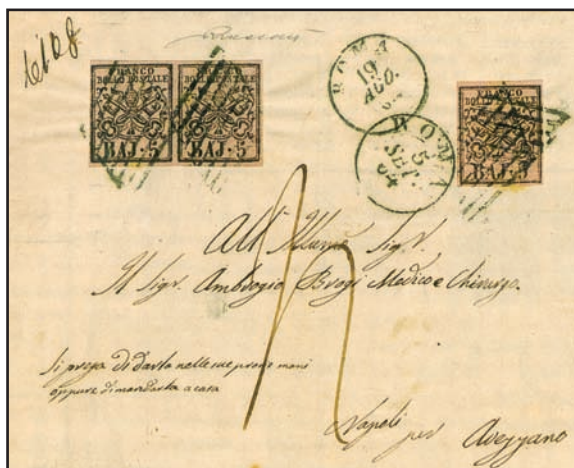 FRANCO
BOLLO POSTALE
BAJ. 5
FRANCO
BOLLO POSTALE
BAJ. 5
ROMA
19
AGO.
FRANCO
BOLLO POSTALE
BAJ. 5
ROMA
5
SET.
54
All' Illumo Sigr.
Il Sigr. Ambrogio Brogi Medico e Chirurgo.
Si prega di darla nelle sue proprie mani
oppure di mandarla a casa
Napoli
per Avezzano